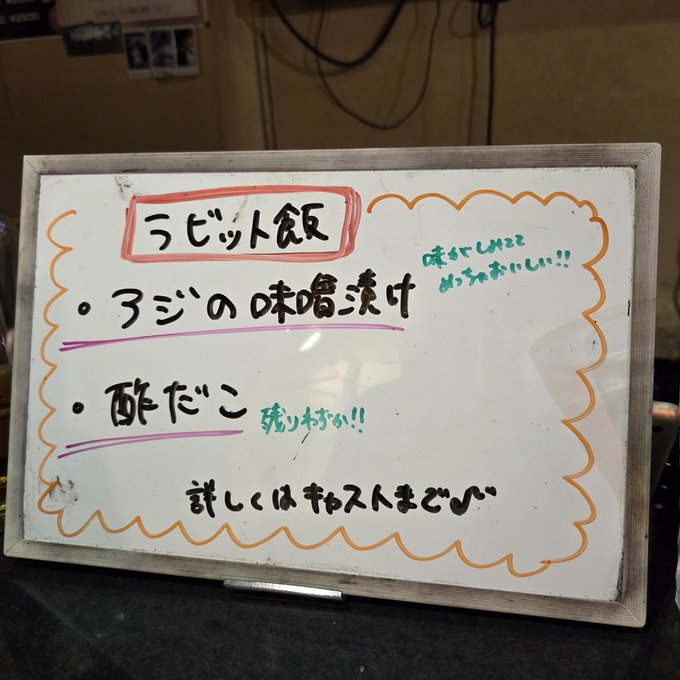 ラビット飯
・アジの味噌漬け
味がしみてて
めっちゃおいしい!!
・酢だこ
残りわずか!!
詳しくはキャストまで♪